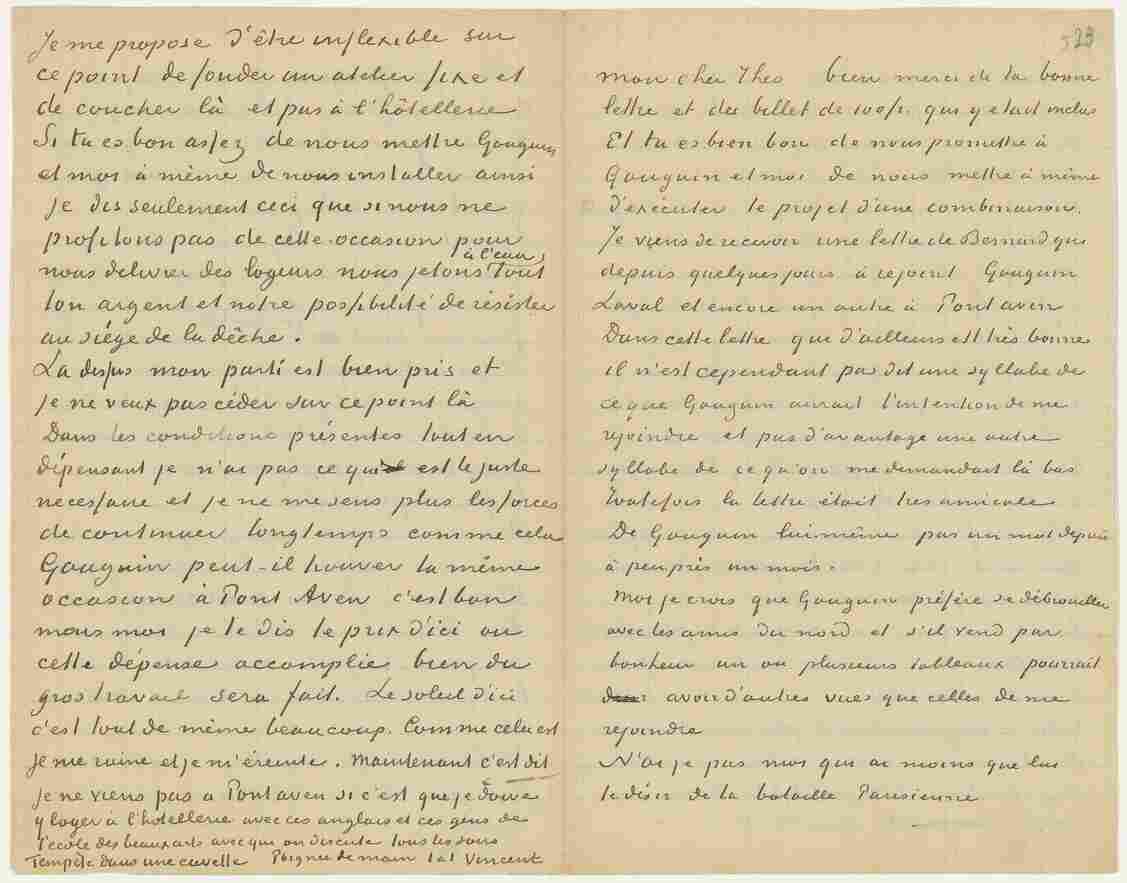 Je me propose d'être inflexible sur
ce point de fonder un atelier fixe et
de coucher là et pas à l'hôtellerie
Si tu es bon assez de nous mettre Gauguin
et moi à même de nous installer ainsi
je dis seulement ceci que si nous ne
profitons pas de cette occasion pour
nous delivrer des logeurs nous jetons à l'eau, tout
ton argent et notre possibilité de résister
au siége de la dêche.
La dessus mon parti est bien pris et
je ne veux pas céder sur ce point là
Dans les conditions présentes tout en
dépensant je n'ai pas ce qui est le juste
necessaire et je ne me sens plus les forces
de continuer longtemps comme cela
Gauguin peut-il trouver la même
occasion à Pont Aven c'est bon
mais moi je te dis le prix d'ici ou
cette dépense accomplie bien du
gros travail sera fait. Le soleil d'ici
c'est tout de même beaucoup. Comme cela est
je me ruine et je m'éreinte. Maintenant c'est dit
je ne viens pas a Pontaven si c'est que je doive
y loger à l'hotellerie avec ces anglais et ces gens de
l'ecole des beaux arts avec qui on discute tous les soirs
Tempête dans une cuvelle Poignee de main t. à t. Vincent
523
mon cher Theo bien merci de ta bonne
lettre et du billet de 100 fr. qui y etait inclus
Et tu es bien bon de nous promettre à
Gauguin et moi de nous mettre à même
d'exécuter le projet d'une combinaison.
Je viens de recevoir une lettre de Bernard qui
depuis quelques jours à rejoint Gauguin
Laval et encore un autre à Pont aven
Dans cette lettre qui d'ailleurs est très bonne
il n'est cependant pas dit une syllabe de
ce que Gauguin aurait l'intention de me
rejoindre et pas d'avantage une autre
syllabe de ce qu'on me demandait là bas
Toutefois la lettre était tres amicale
De Gauguin lui même pas un mot depuis
à peu près un mois.
Moi je crois que Gauguin préfère se débrouiller
avec les amis du nord et s'il vend par
bonheur un ou plusieurs tableaux pourrait
avoir d'autres vues que celles de me
rejoindre
N'ai je pas moi qui ai moins que lui
le désir de la bataille Parisienne